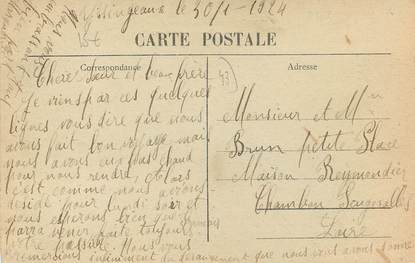 Yssingeaux le 30/1 - 1924
CARTE POSTALE
Correspondance
Adresse
43
Chere Sœur et beau frère
Je viens par ces quelques
lignes, vous dire que nous
avons fait bon voyage mais
nous avons eu pas chaud
pour nous rendre, alors
c'est comme nous avons
desidé pour lundi soir et
nous esperons bien que
pourra venir faite toujours
votre passive. Nous vous
remercions infiniment du derangement que nous vous avons donné
Monsieur et Mme
Brun petite Place
Maison Reymondier
Chambon Feugerolles
Loire